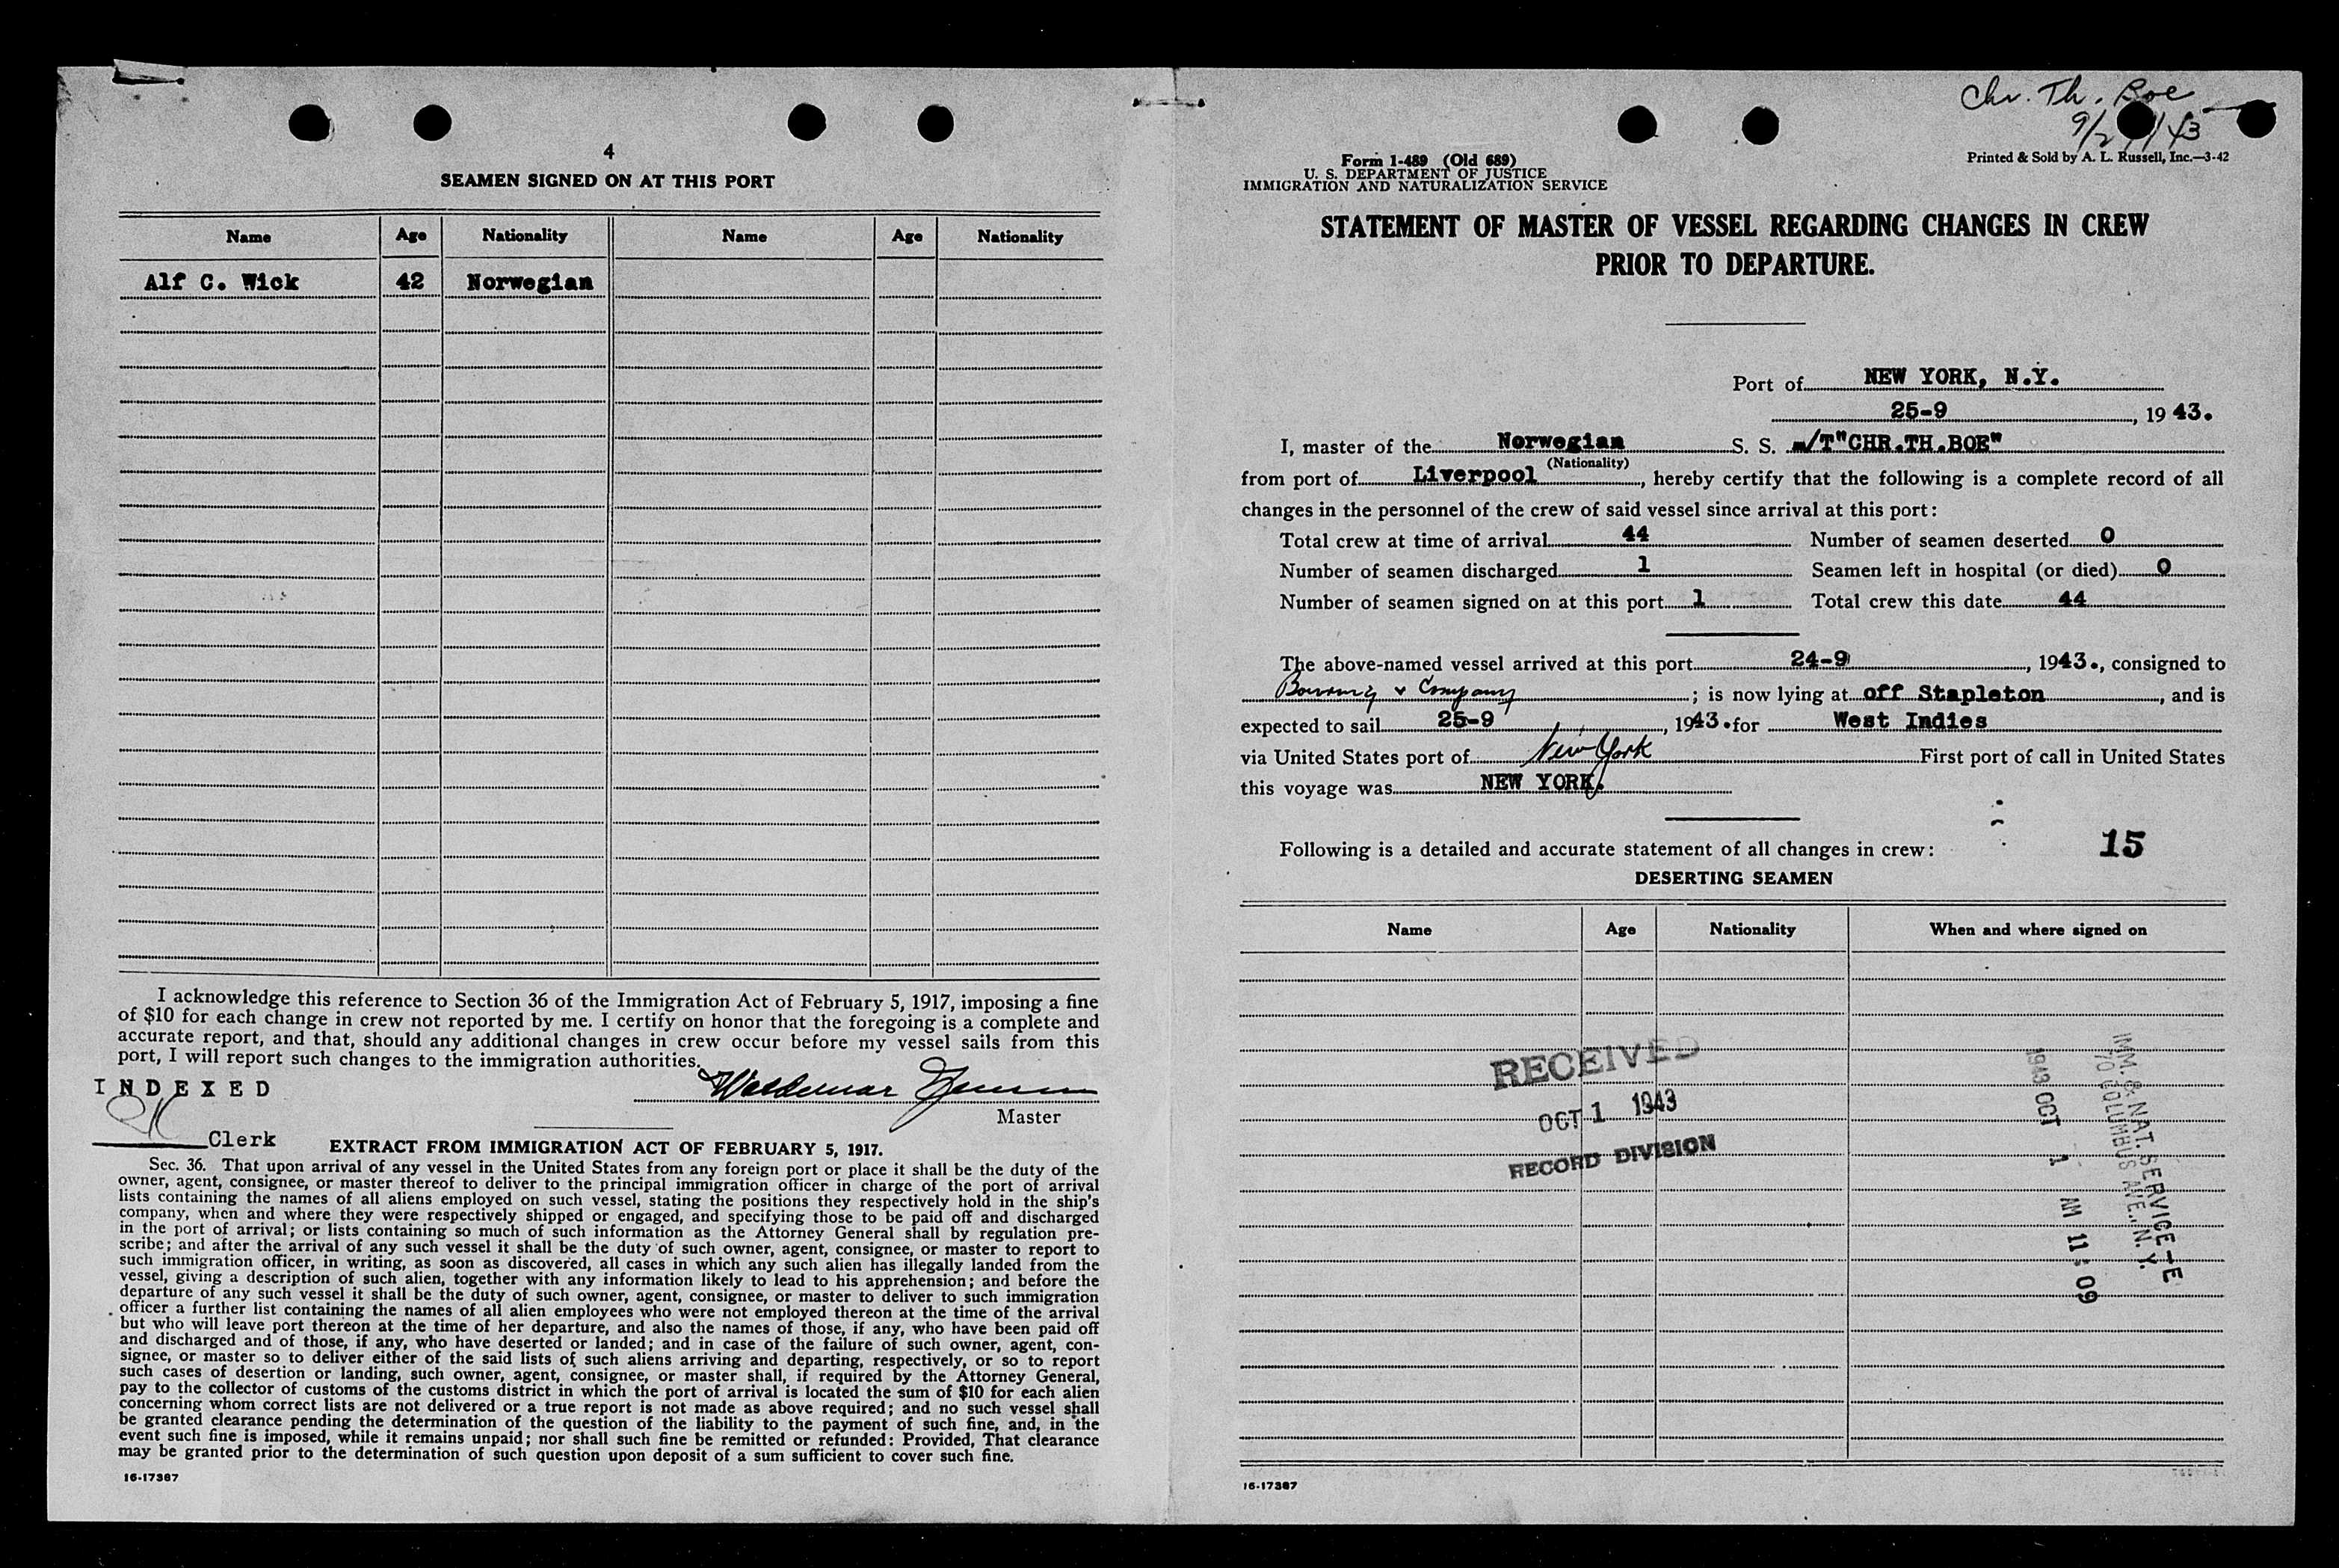 4
SEAMEN SIGNED ON AT THIS PORT
Name Age Nationality Name Age Nationality
Alf C. Wick 42 Norwegian
I acknowledge this reference to Section 36 of the Immigration Act of February 5, 1917, imposing a fine
of $10 for each change in crew not reported by me. I certify on honor that the foregoing is a complete and
accurate report, and that, should any additional changes in crew occur before my vessel sails from this
port, I will report such changes to the immigration authorities.
INDEXED
Waldemar
Master
Clerk
EXTRACT FROM IMMIGRATION ACT OF FEBRUARY 5, 1917.
Sec. 36. That upon arrival of any vessel in the United States from any foreign port or place it shall be the duty of the
owner, agent, consignee, or master thereof to deliver to the principal immigration officer in charge of the port of arrival
lists containing the names of all aliens employed on such vessel, stating the positions they respectively hold in the ship's
company, when and where they were respectively shipped or engaged, and specifying those to be paid off and discharged
in the port of arrival; or lists containing so much of such information as the Attorney General shall by regulation pre-
scribe; and after the arrival of any such vessel it shall be the duty of such owner, agent, consignee, or master to report to
such immigration officer, in writing, as soon as discovered, all cases in which any such alien has illegally landed from the
vessel, giving a description of such alien, together with any information likely to lead to his apprehension; and before the
departure of any such vessel it shall be the duty of such owner, agent, consignee, or master to deliver to such immigration
officer a further list containing the names of all alien employees who were not employed thereon at the time of the arrival
but who will leave port thereon at the time of her departure, and also the names of those, if any, who have been paid off
and discharged and of those, if any, who have deserted or landed; and in case of the failure of such owner, agent, con-
signee, or master so to deliver either of the said lists of such aliens arriving and departing, respectively, or so to report
such cases of desertion or landing, such owner, agent, consignee, or master shall, if required by the Attorney General,
pay to the collector of customs of the customs district in which the port of arrival is located the sum of $10 for each alien
concerning whom correct lists are not delivered or a true report is not made as above required; and no such vessel shall
be granted clearance pending the determination of the question of the liability to the payment of such fine, and, in the
event such fine is imposed, while it remains unpaid; nor shall such fine be remitted or refunded: Provided, That clearance
may be granted prior to the determination of such question upon deposit of a sum sufficient to cover such fine.
16-17387
Chr. Th. Boe
Form 1-489 (Old 689)
U. S. DEPARTMENT OF JUSTICE
IMMIGRATION AND NATURALIZATION SERVICE
Printed & Sold by A. L. Russell, Inc.—3-42
STATEMENT OF MASTER OF VESSEL REGARDING CHANGES IN CREW
PRIOR TO DEPARTURE.
Port of NEW YORK, N.Y.
25-9, 1943.
I, master of the Norwegian S. S. m/T"CHR.TH.BOE"
(Nationality)
from port of Liverpool, hereby certify that the following is a complete record of all
changes in the personnel of the crew of said vessel since arrival at this port:
Total crew at time of arrival 44 Number of seamen deserted 0
Number of seamen discharged 1 Seamen left in hospital (or died) 0
Number of seamen signed on at this port 1 Total crew this date 44
The above-named vessel arrived at this port 24-9, 1943., consigned to
Bowring & Company; is now lying at off Stapleton, and is
expected to sail 25-9, 1943. for West Indies
via United States port of New York First port of call in United States
this voyage was NEW YORK.
Following is a detailed and accurate statement of all changes in crew:
15
DESERTING SEAMEN
Name Age Nationality When and where signed on
RECEIVED
OCT 1 1943
RECORD DIVISION
IMM. & NAT. SERVICE
70 COLUMBUS AVE., N. Y.
1943 OCT 1 AM 11:09
16-17387